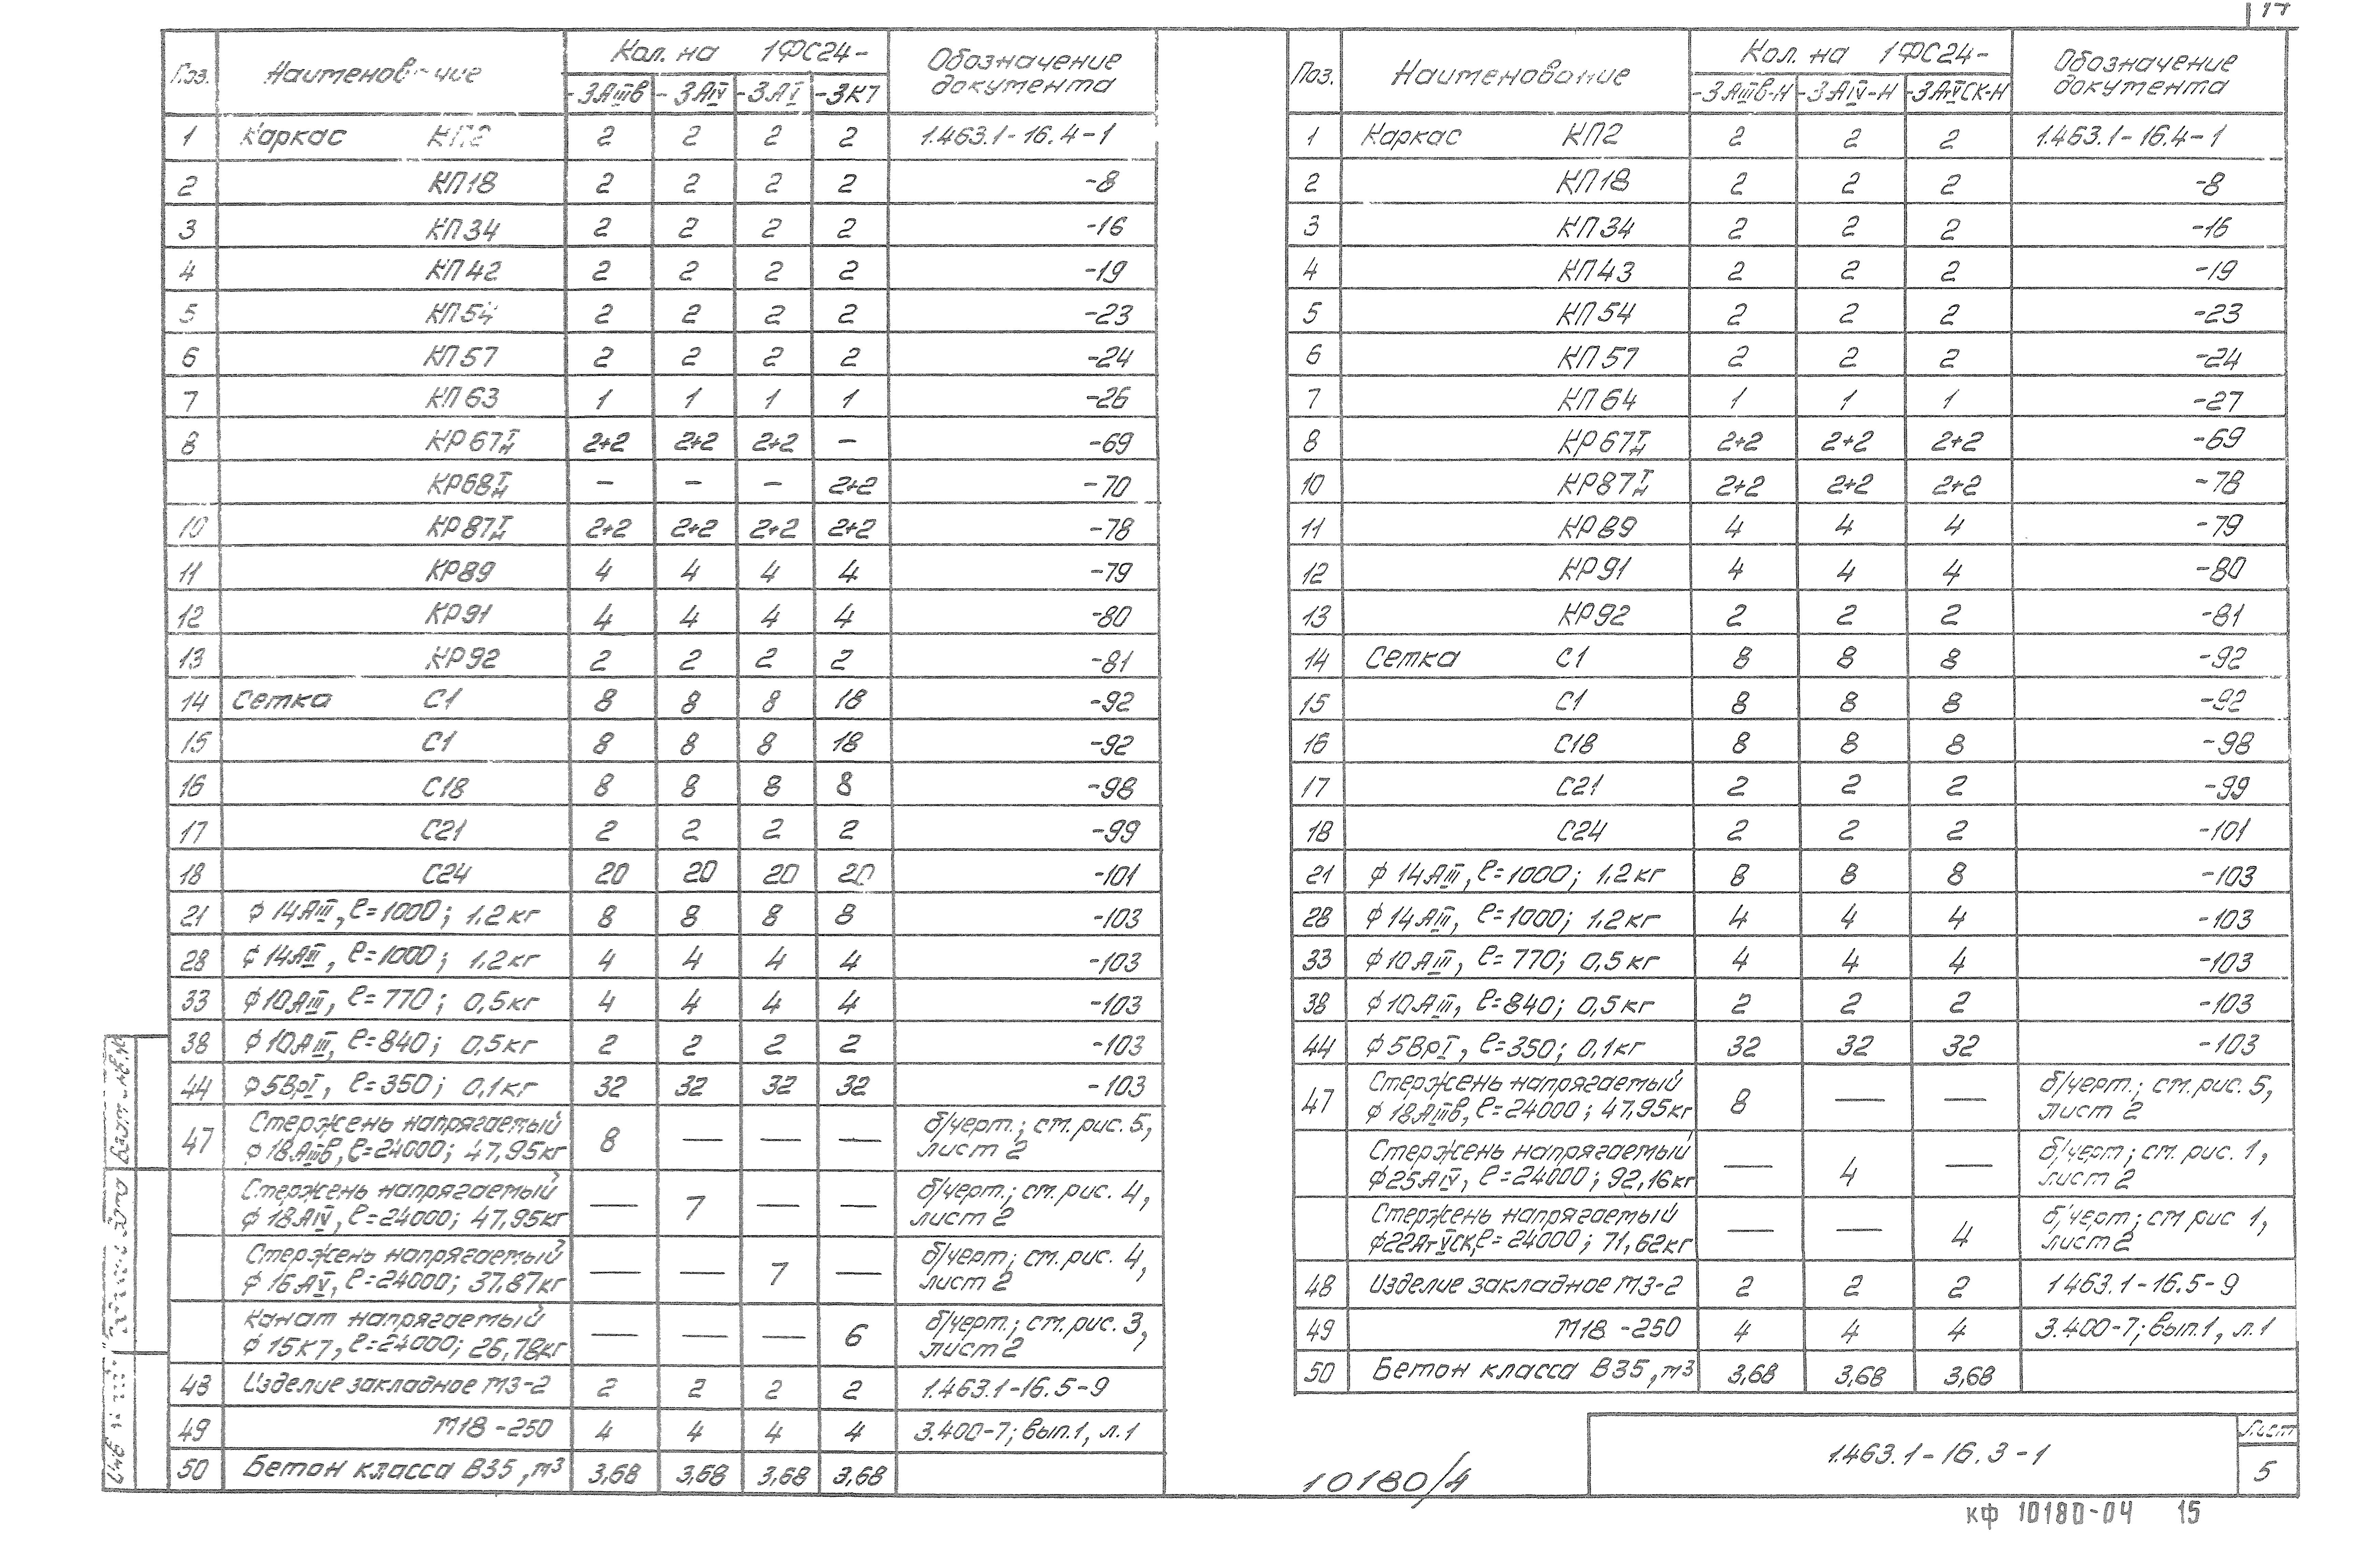 Поз. Наименование Кол. на 1ФС24- Обозначение документа
-3АIIIв -3АIV -3АV -3К7
1 Каркас КП2 2 2 2 2 1.463.1-16.4-1
2 КП18 2 2 2 2 -8
3 КП34 2 2 2 2 -16
4 КП42 2 2 2 2 -19
5 КП54 2 2 2 2 -23
6 КП57 2 2 2 2 -24
7 КП63 1 1 1 1 -26
8 КР67Т/Н 2+2 2+2 2+2 – -69
КР68Т/Н – – – 2+2 -70
10 КР87Т/Н 2+2 2+2 2+2 2+2 -78
11 КР89 4 4 4 4 -79
12 КР91 4 4 4 4 -80
13 КР92 2 2 2 2 -81
14 Сетка С1 8 8 8 18 -92
15 С1 8 8 8 18 -92
16 С18 8 8 8 8 -98
17 С21 2 2 2 2 -99
18 С24 20 20 20 20 -101
21 ϕ14АIII, ℓ=1000; 1,2кг 8 8 8 8 -103
28 ϕ14АIII, ℓ=1000; 1,2кг 4 4 4 4 -103
33 ϕ10АIII, ℓ=770; 0,5кг 4 4 4 4 -103
38 ϕ10АIII, ℓ=840; 0,5кг 2 2 2 2 -103
44 ϕ5ВрI, ℓ=350; 0,1кг 32 32 32 32 -103
47 Стержень напрягаемый 8 — — — б/черт.; см. рис. 5,
ϕ18АIIIв, ℓ=24000; 47,95кг лист 2
Стержень напрягаемый — 7 — — б/черт.; см. рис. 4,
ϕ18АIV, ℓ=24000; 47,95кг лист 2
Стержень напрягаемый — — 7 — б/черт; см. рис. 4,
ϕ16АV, ℓ=24000; 37,87кг лист 2
Канат напрягаемый — — — 6 б/черт.; см. рис. 3,
ϕ15К7, ℓ=24000; 26,78кг лист 2
48 Изделие закладное М3-2 2 2 2 2 1.463.1-16.5-9
49 М18-250 4 4 4 4 3.400-7; вып.1, л.1
50 Бетон класса В35, м³ 3,68 3,68 3,68 3,68
Поз. Наименование Кол. на 1ФС24- Обозначение документа
-3АIIIв-Н -3АIV-Н -3АтVСК-Н
1 Каркас КП2 2 2 2 1.463.1-16.4-1
2 КП18 2 2 2 -8
3 КП34 2 2 2 -16
4 КП43 2 2 2 -19
5 КП54 2 2 2 -23
6 КП57 2 2 2 -24
7 КП64 1 1 1 -27
8 КР67Т/Н 2+2 2+2 2+2 -69
10 КР87Т/Н 2+2 2+2 2+2 -78
11 КР89 4 4 4 -79
12 КР91 4 4 4 -80
13 КР92 2 2 2 -81
14 Сетка С1 8 8 8 -92
15 С1 8 8 8 -92
16 С18 8 8 8 -98
17 С21 2 2 2 -99
18 С24 2 2 2 -101
21 ϕ14АIII, ℓ=1000; 1,2кг 8 8 8 -103
28 ϕ14АIII, ℓ=1000; 1,2кг 4 4 4 -103
33 ϕ10АIII, ℓ=770; 0,5кг 4 4 4 -103
38 ϕ10АIII, ℓ=840; 0,5кг 2 2 2 -103
44 ϕ5ВрI, ℓ=350; 0,1кг 32 32 32 -103
47 Стержень напрягаемый 8 — — б/черт.; см. рис. 5,
ϕ18АIIIв, ℓ=24000; 47,95кг лист 2
Стержень напрягаемый — 4 — б/черт; см. рис. 1,
ϕ25АIV, ℓ=24000; 92,16кг лист 2
Стержень напрягаемый — — 4 б/черт; см рис 1,
ϕ22АтVСК, ℓ=24000; 71,62кг лист 2
48 Изделие закладное М3-2 2 2 2 1463.1-16.5-9
49 М18-250 4 4 4 3.400-7; вып.1, л.1
50 Бетон класса В35, м³ 3,68 3,68 3,68
10180/4
1.463.1-16.3-1
Лист
5
КФ 10180-04 15